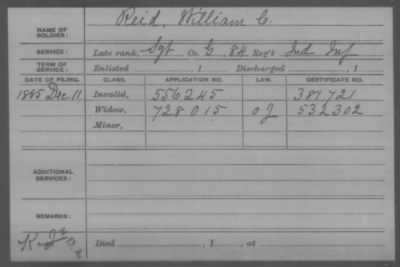 NAME OF SOLDIER: Reid, William C.
SERVICE: Late rank, Sgt Co. G, 84 Reg't Ind Inf
TERM OF SERVICE: Enlisted , 1 Discharged , 1
DATE OF FILING. CLASS. APPLICATION NO. LAW. CERTIFICATE NO.
1885 Dec 11 Invalid, 556245 387721
Widow, 728015 O J 532302
Minor,
ADDITIONAL SERVICES:
REMARKS:
Died , 1 , at